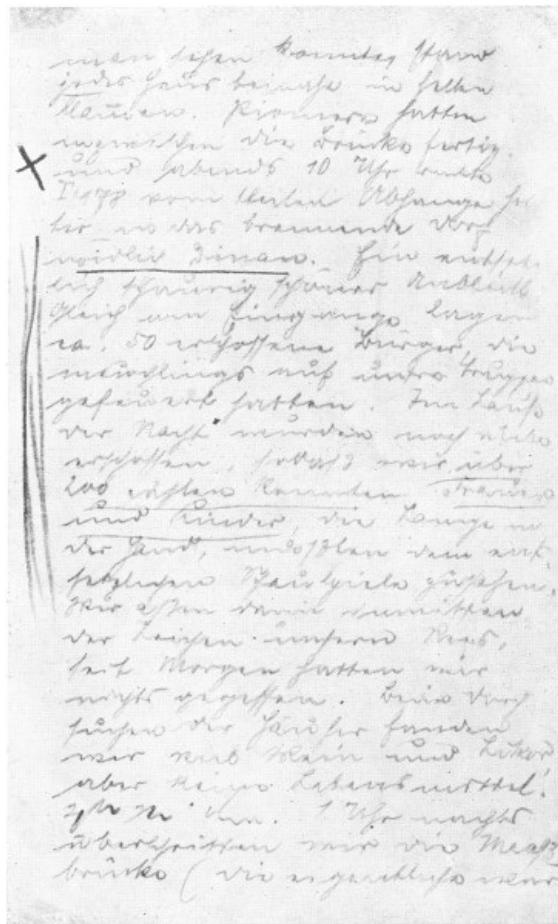 man sehen konnte, stand
jedes Haus beinahe in hellen
Flammen. Pioniere hatten
inzwischen die Brücke fertig
und abends 10 Uhr rückte
I/178 vom steilen Abhange her
in das brennende Dorf
nördlich Dinan. Ein entsetz
lich schaurig schöner Anblick
Gleich am Eingange lagen
ca. 50 erschossene Bürger, die
meuchlings auf unsre Truppen
gefeuert hatten. Im Laufe
der Nacht wurden noch viele
erschossen, sodaß wir über
200 zählen konnten. Frauen
und Kinder, die Lampe in
der Hand, mußten dem ent-
setzlichen Schauspiele zusehen.
Wir aßen dann inmitten
der Leichen unsern Reis,
seit Morgen hatten wir
nichts gegessen. Beim Durch
suchen der Häuser fanden
wir viel Wein und Likör,
aber keine Lebensmittel.
1 Uhr nachts
überschritten wir die Maaß
brücke (die eigentliche war